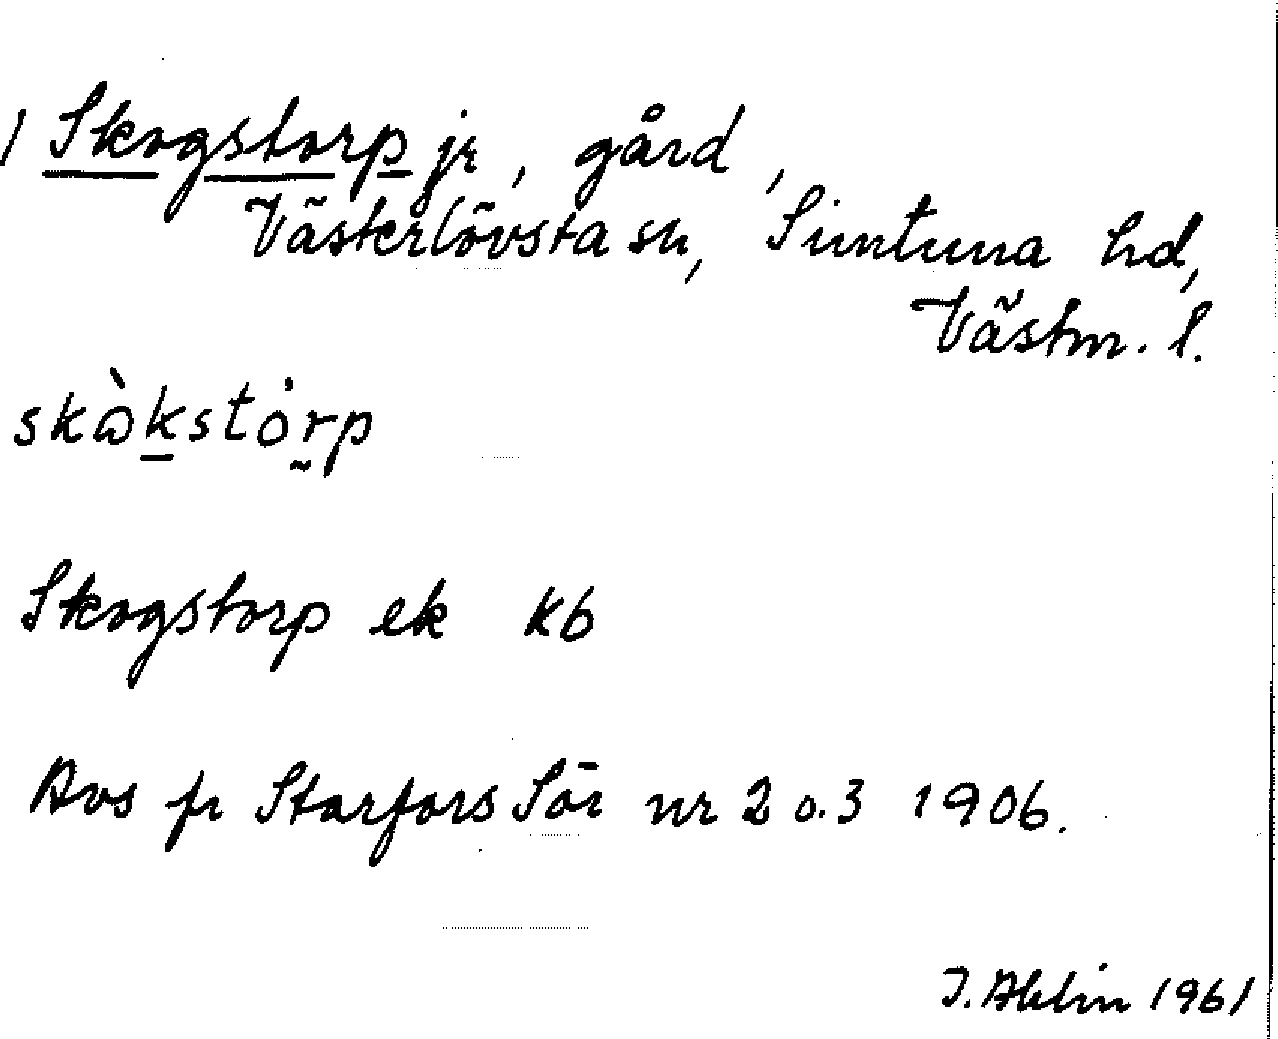 1 Skogstorp jr, gård,
Västerlövsta sn, Simtuna hd,
Västm. l.
skɷ̀kstȯr̰p
Skogstorp ek Kb
Avs fr Starfors Sör nr 2 o. 3 1906.
I. Ahlin 1961